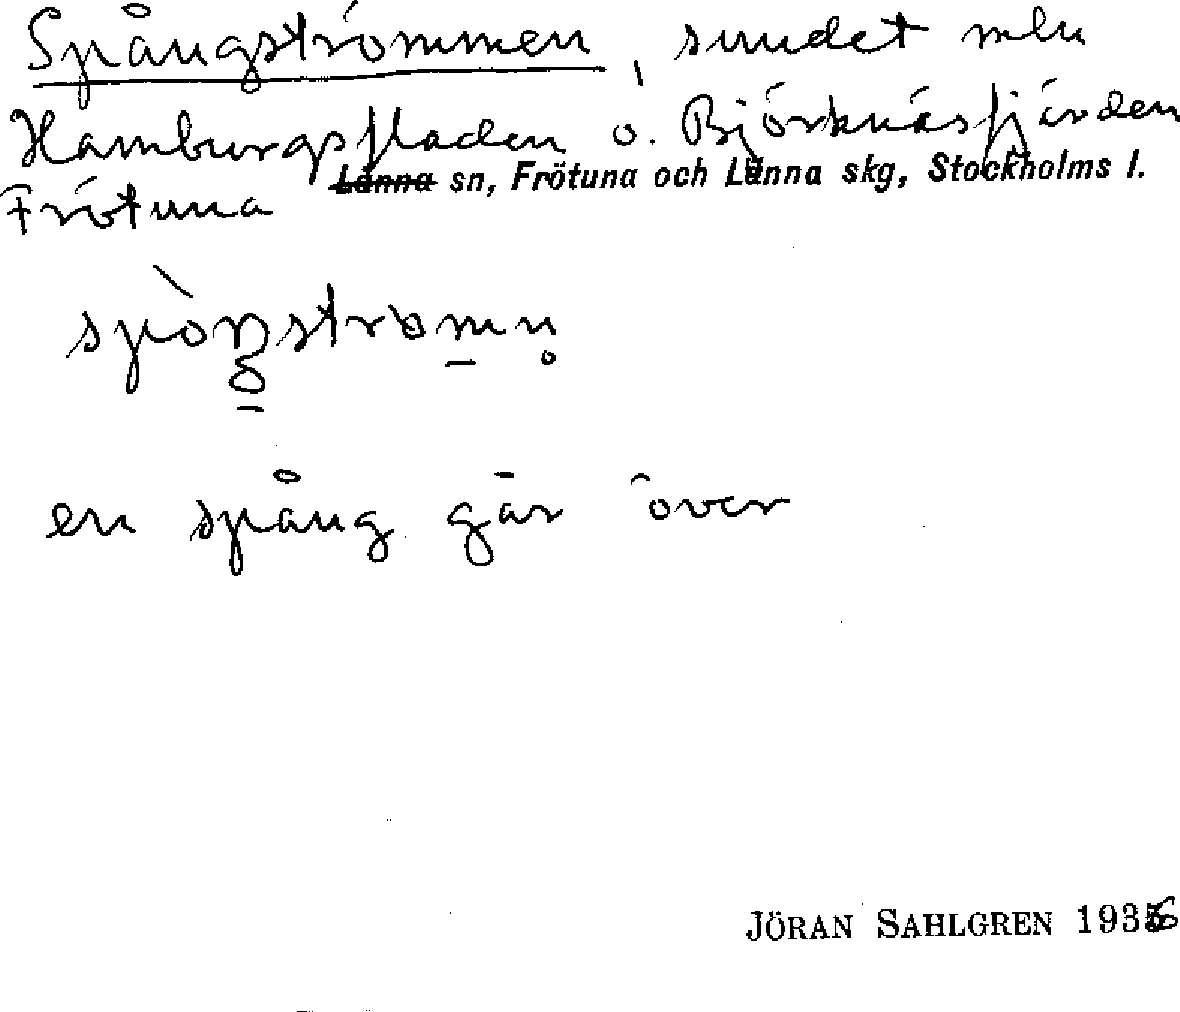 Spångströmmen, sundet mln
Hamburgsfladen o. Björknäsfjärden
Länna sn, Frötuna och Länna skg, Stockholms l.
Frötuna
en spång går över
JÖRAN SAHLGREN 1936